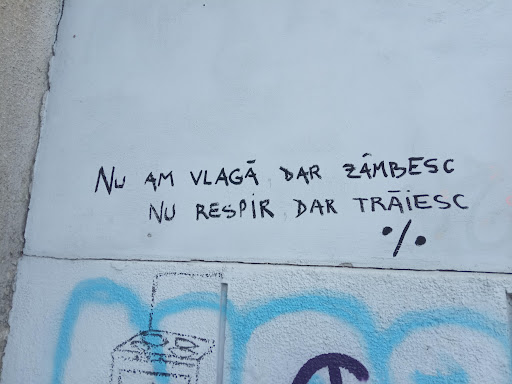 NU AM VLAGĂ DAR ZÂMBESC
NU RESPIR DAR TRĂIESC
%